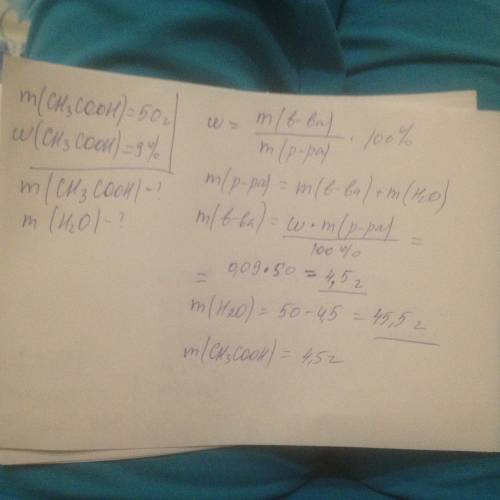 m(CH₃COOH)=50г
w(CH₃COOH)=9%
m(CH₃COOH)-?
m(H₂O)-?
w = m(в-ва) / m(р-ра) · 100%
m(р-ра) = m(в-ва) + m(H₂O)
m(в-ва) = w · m(р-ра) / 100% =
= 0,09 · 50 = 4,5г
m(H₂O) = 50 - 4,5 = 45,5г
m(CH₃COOH) = 4,5г